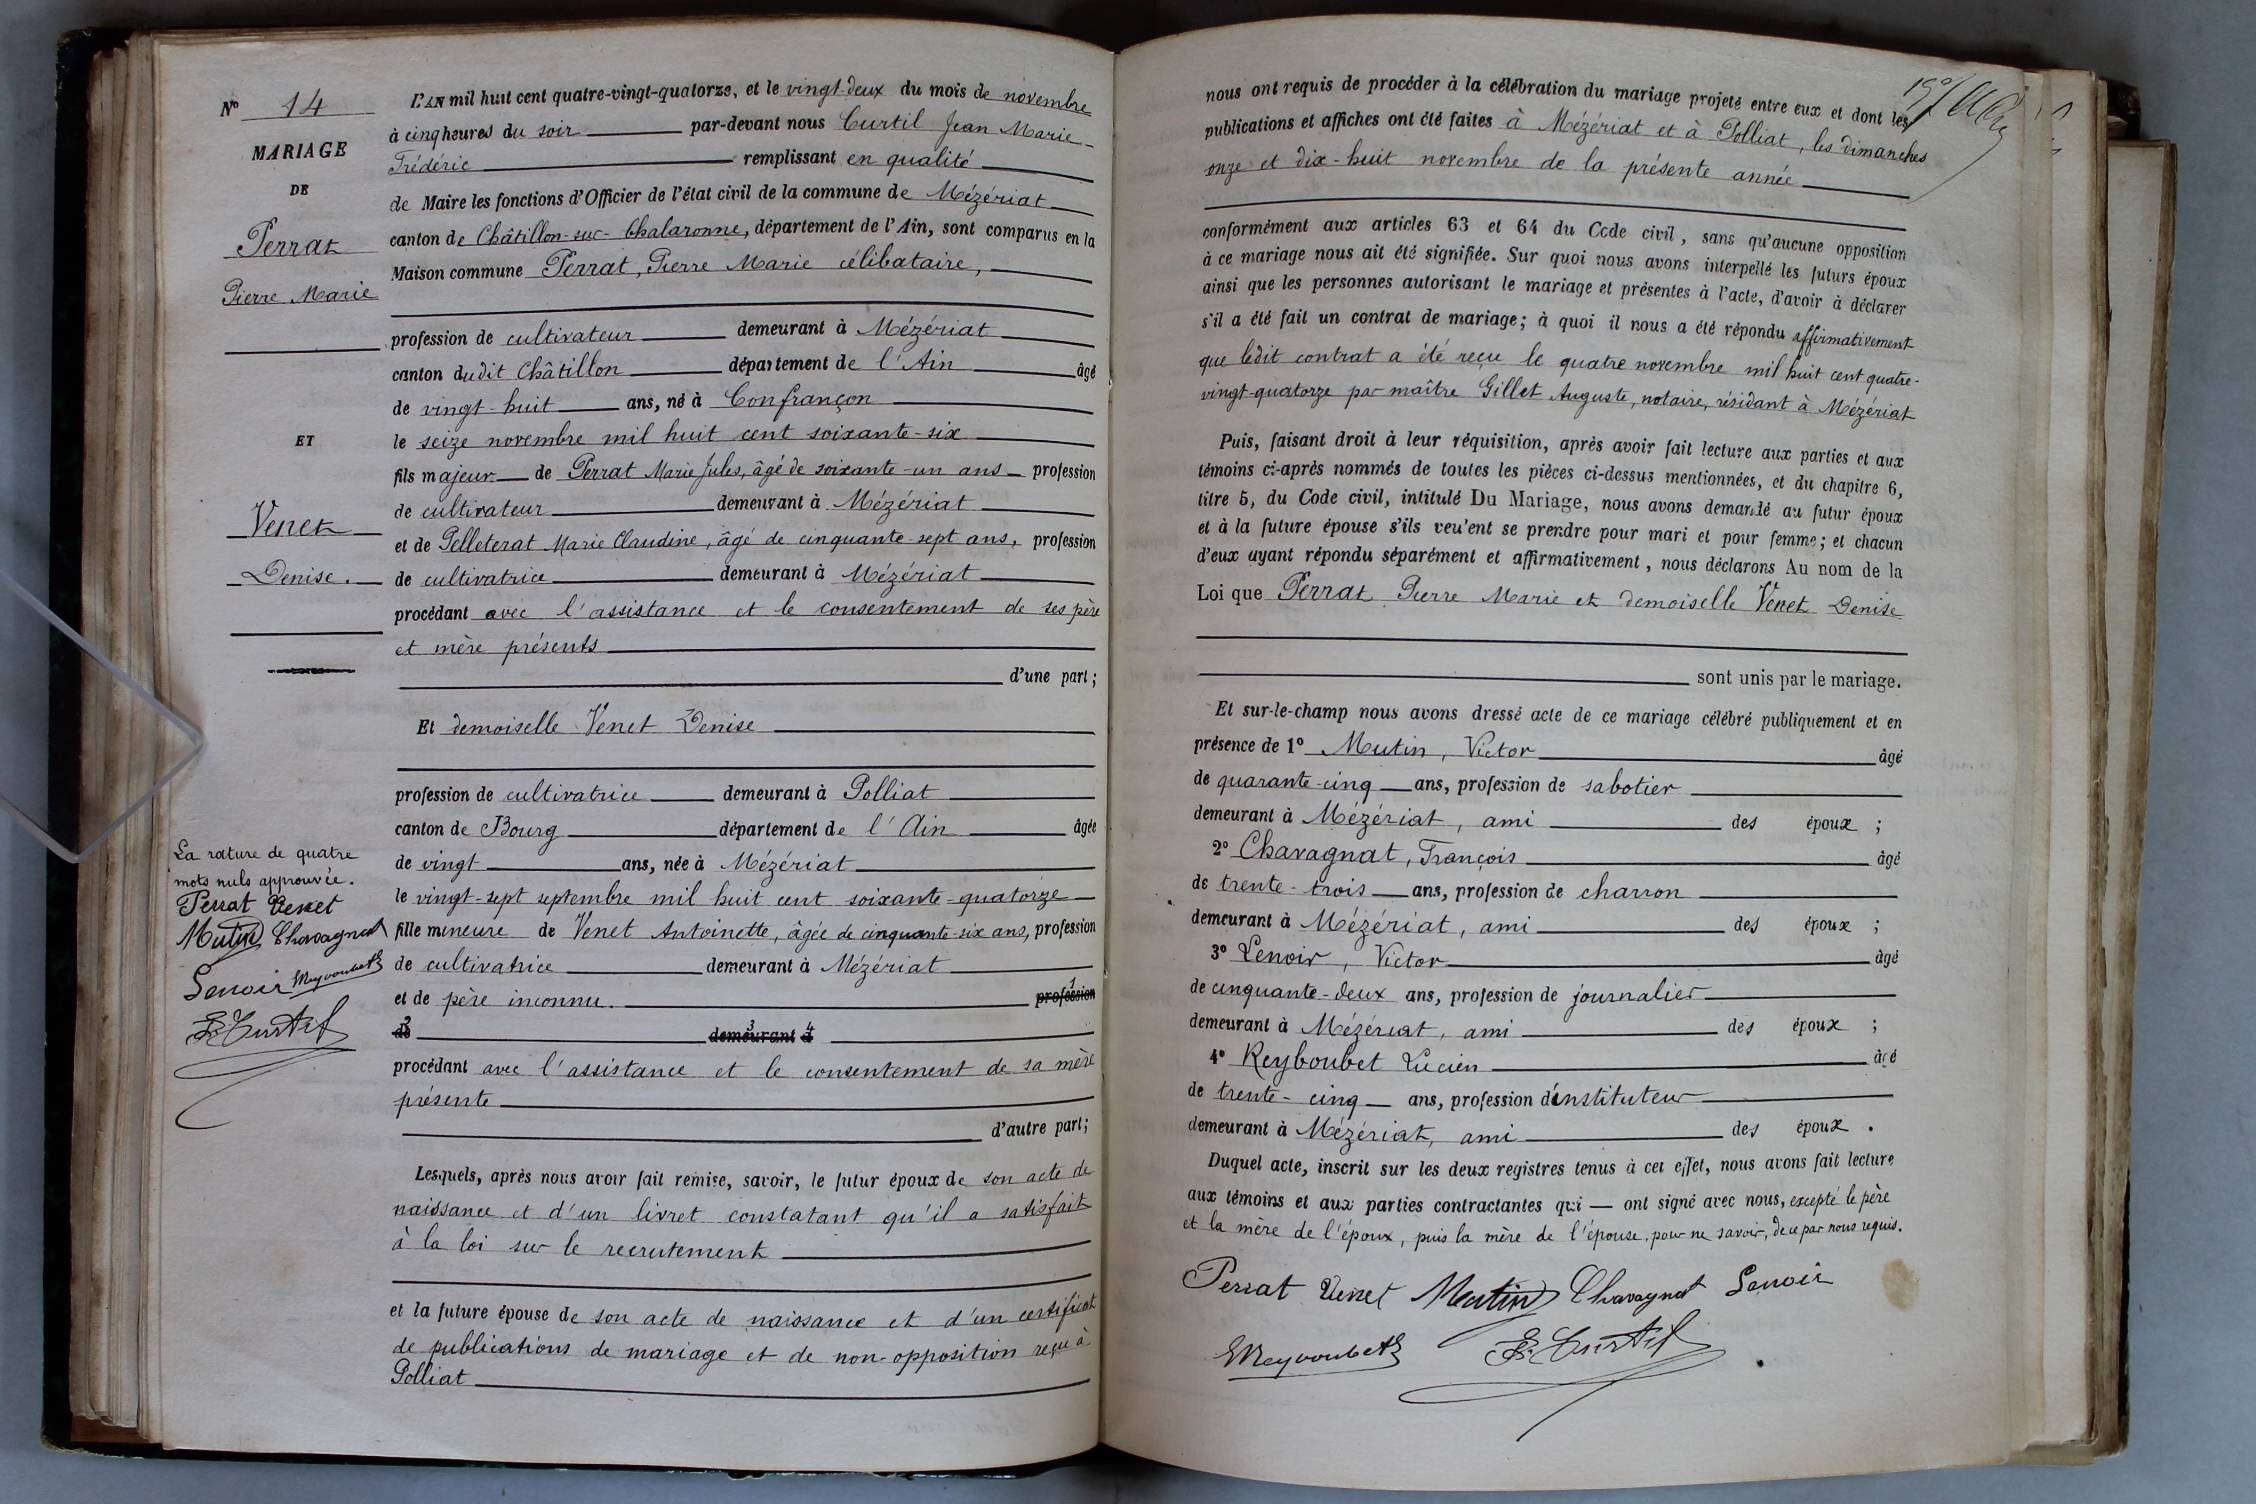 N° 14
MARIAGE
DE
Perrat
Pierre Marie
ET
Venet
Denise.
La rature de quatre
mots nuls approuvée.
Perrat Venet
Mutin Chavagnat
Lenoir
L'AN mil huit cent quatre-vingt-quatorze, et le vingt-deux du mois de novembre
à cinq heures du soir par-devant nous Curtil Jean Marie
Frédéric remplissant en qualité
de Maire les fonctions d'Officier de l'état civil de la commune de Mézériat
canton de Châtillon-sur-Chalaronne, département de l'Ain, sont comparus en la
Maison commune Perrat, Pierre Marie célibataire,
profession de cultivateur demeurant à Mézériat
canton dudit Châtillon département de l'Ain âgé
de vingt-huit ans, né à Confrançon
le seize novembre mil huit cent soixante-six
fils majeur de Perrat Marie Jules, âgé de soixante-un ans profession
de cultivateur demeurant à Mézériat
et de Pelleterat Marie Claudine, âgé de cinquante-sept ans, profession
de cultivatrice demeurant à Mézériat
procédant avec l'assistance et le consentement de ses père
et mère présents
d'une part;
Et demoiselle Venet Denise
profession de cultivatrice demeurant à Polliat
canton de Bourg département de l'Ain âgée
de vingt ans, née à Mézériat
le vingt-sept septembre mil huit cent soixante-quatorze
fille mineure de Venet Antoinette, âgée de cinquante-six ans, profession
de cultivatrice demeurant à Mézériat
et de père inconnu. profession 1
de 2 demeurant 3 à 4
procédant avec l'assistance et le consentement de sa mère
présente
d'autre part;
Lesquels, après nous avoir fait remise, savoir, le futur époux de son acte de
naissance et d'un livret constatant qu'il a satisfait
à la loi sur le recrutement
et la future épouse de son acte de naissance et d'un certificat
de publications de mariage et de non-opposition reçu à
Polliat
nous ont requis de procéder à la célébration du mariage projeté entre eux et dont les
publications et affiches ont été faites à Mézériat et à Polliat, les dimanches
onze et dix-huit novembre de la présente année
conformément aux articles 63 et 64 du Code civil, sans qu'aucune opposition
à ce mariage nous ait été signifiée. Sur quoi nous avons interpellé les futurs époux
ainsi que les personnes autorisant le mariage et présentes à l'acte, d'avoir à déclarer
s'il a été fait un contrat de mariage; à quoi il nous a été répondu affirmativement
que ledit contrat a été reçu le quatre novembre mil huit cent quatre-
vingt-quatorze par maître Gillet Auguste, notaire, résidant à Mézériat
Puis, faisant droit à leur réquisition, après avoir fait lecture aux parties et aux
témoins ci-après nommés de toutes les pièces ci-dessus mentionnées, et du chapitre 6,
titre 5, du Code civil, intitulé Du Mariage, nous avons demandé au futur époux
et à la future épouse s'ils veulent se prendre pour mari et pour femme; et chacun
d'eux ayant répondu séparément et affirmativement, nous déclarons Au nom de la
Loi que Perrat Pierre Marie et demoiselle Venet Denise
sont unis par le mariage.
Et sur-le-champ nous avons dressé acte de ce mariage célébré publiquement et en
présence de 1° Mutin, Victor âgé
de quarante-cinq ans, profession de sabotier
demeurant à Mézériat, ami des époux;
2° Chavagnat, François âgé
de trente-trois ans, profession de charron
demeurant à Mézériat, ami des époux;
3° Lenoir, Victor âgé
de cinquante-deux ans, profession de journalier
demeurant à Mézériat, ami des époux;
4° Reyboubet Lucien âgé
de trente-cinq ans, profession d'instituteur
demeurant à Mézériat, ami des époux.
Duquel acte, inscrit sur les deux registres tenus à cet effet, nous avons fait lecture
aux témoins et aux parties contractantes qui — ont signé avec nous, excepté le père
et la mère de l'époux, puis la mère de l'épouse, pour ne savoir, de ce par nous requis.
Perrat Venet Mutin Chavagnat Lenoir